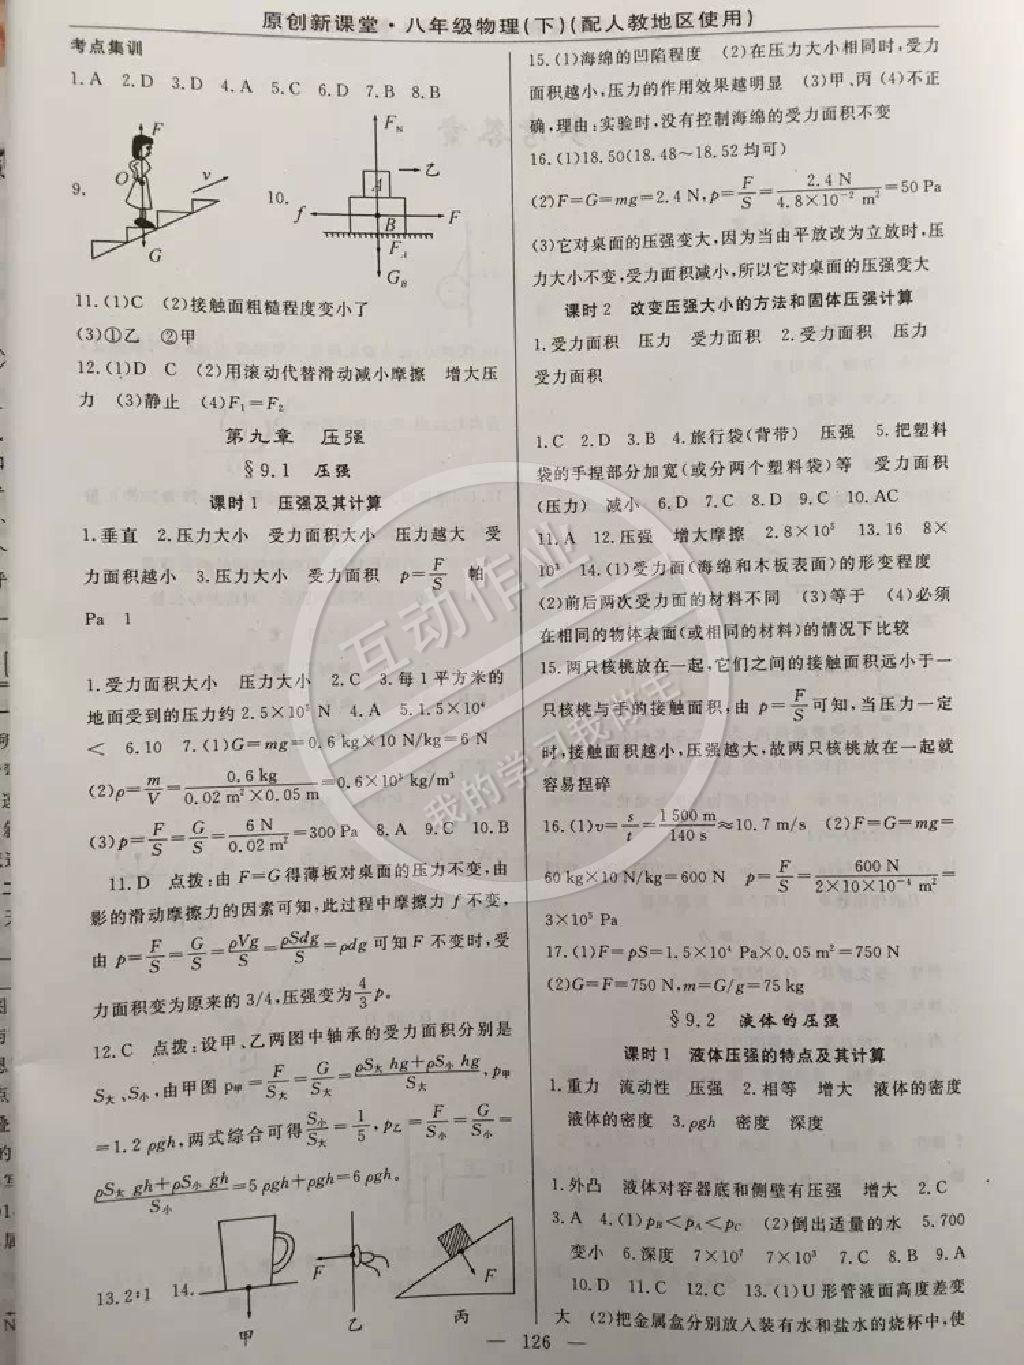 原创新课堂·八年级物理(下)(配人教地区使用)
考点集训
1.A 2.D 3.D 4.A 5.C 6.D 7.B 8.B
9.
F
O
v
G
10.
F_N
A
乙
f
B
F
F_A
G_B
11.(1)C (2)接触面粗糙程度变小了
(3)①乙 ②甲
12.(1)D C (2)用滚动代替滑动减小摩擦 增大压
力 (3)静止 (4)F₁=F₂
第九章 压强
§9.1 压强
课时1 压强及其计算
1.垂直 2.压力大小 受力面积大小 压力越大 受
力面积越小 3.压力大小 受力面积 p=F/S 帕
Pa 1
1.受力面积大小 压力大小 2.C 3.每1平方米的
地面受到的压力约2.5×10⁵ N 4.A 5.1.5×10⁴
< 6.10 7.(1)G=mg=0.6 kg×10 N/kg=6 N
(2)ρ=m/V=0.6 kg/(0.02 m²×0.05 m)=0.6×10³ kg/m³
(3)p=F/S=G/S=6 N/0.02 m²=300 Pa 8.A 9.C 10.B
11.D 点拨:由F=G得薄板对桌面的压力不变,由
影的滑动摩擦力的因素可知,此过程中摩擦力f不变,
由p=F/S=G/S=ρVg/S=ρSdg/S=ρdg可知F不变时,受
力面积变为原来的3/4,压强变为4/3p。
12.C 点拨:设甲、乙两图中轴承的受力面积分别是
S大、S小,由甲图p甲=F/S大=G/S大=(ρS大hg+ρS小hg)/S大,p甲
=1.2 ρgh,两式综合可得S小/S大=1/5,p乙=F/S小=G/S小=
(ρS大gh+ρS小gh)/S小=5 ρgh+ρgh=6 ρgh。
13.2:1 14.
甲
F
乙
F
丙
15.(1)海绵的凹陷程度 (2)在压力大小相同时,受力
面积越小,压力的作用效果越明显 (3)甲、丙 (4)不正
确,理由:实验时,没有控制海绵的受力面积不变
16.(1)18.50(18.48~18.52均可)
(2)F=G=mg=2.4 N,p=F/S=2.4 N/(4.8×10⁻² m²)=50 Pa
(3)它对桌面的压强变大,因为当由平放改为立放时,压
力大小不变,受力面积减小,所以它对桌面的压强变大
课时2 改变压强大小的方法和固体压强计算
1.受力面积 压力 受力面积 2.受力面积 压力
受力面积
1.C 2.D 3.B 4.旅行袋(背带) 压强 5.把塑料
袋的手捏部分加宽(或分两个塑料袋)等 受力面积
(压力) 减小 6.D 7.C 8.D 9.C 10.AC
11.A 12.压强 增大摩擦 2.8×10⁵ 13.16 8×
10³ 14.(1)受力面(海绵和木板表面)的形变程度
(2)前后两次受力面的材料不同 (3)等于 (4)必须
在相同的物体表面(或相同的材料)的情况下比较
15.两只核桃放在一起,它们之间的接触面积远小于一
只核桃与手的接触面积,由p=F/S可知,当压力一定
时,接触面积越小,压强越大,故两只核桃放在一起就
容易捏碎
16.(1)v=s/t=1 500 m/140 s≈10.7 m/s (2)F=G=mg=
60 kg×10 N/kg=600 N p=F/S=600 N/(2×10×10⁻⁴ m²)=
3×10⁵ Pa
17.(1)F=pS=1.5×10⁴ Pa×0.05 m²=750 N
(2)G=F=750 N,m=G/g=75 kg
§9.2 液体的压强
课时1 液体压强的特点及其计算
1.重力 流动性 压强 2.相等 增大 液体的密度
液体的密度 3.ρgh 密度 深度
1.外凸 液体对容器底和侧壁有压强 增大 2.C
3.A 4.(1)p_B<p_A<p_C (2)倒出适量的水 5.700
变小 6.深度 7×10⁷ 7×10³ 7.C 8.B 9.A
10.D 11.C 12.C 13.(1)U形管液面高度差变
大 (2)把金属盒分别放入装有水和盐水的烧杯中,使
— 126 —
互动作业
我的学习我做主